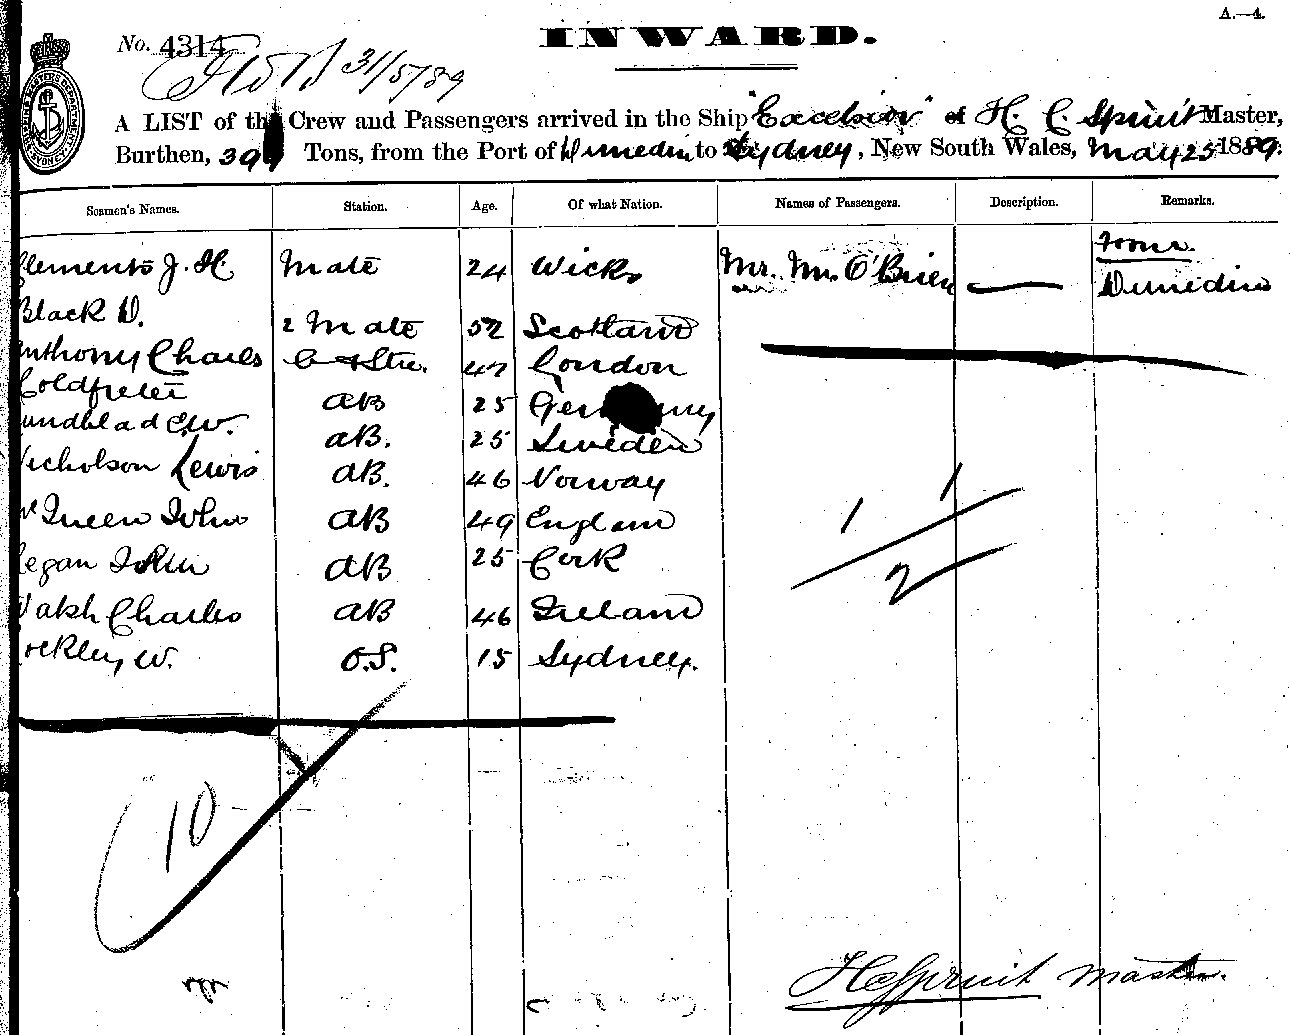 A.—4.
No. 4314
INWARD.
31/5/89
A LIST of the Crew and Passengers arrived in the Ship "Excelsior" of H. C. Spruit Master,
Burthen, 39 Tons, from the Port of Dunedin to Sydney, New South Wales, May 25 1889.
Seamen's Names. Station. Age. Of what Nation. Names of Passengers. Description. Remarks.
from
lements J. H. Mate 24 Wick Mr. O'Brien — Dunedin
Black D. 2 Mate 52 Scotland
nthony Charles C & Stu. 47 London
AB 25 Germany
undblad C.W. AB. 25 Sweden
icholson Lewis AB. 46 Norway
Queen John AB 49 England
egan John AB 25 Cork
Walsh Charles AB 46 Ireland
ockley W. O.S. 15 Sydney.
1 1
2
10
H C Spruit Master.